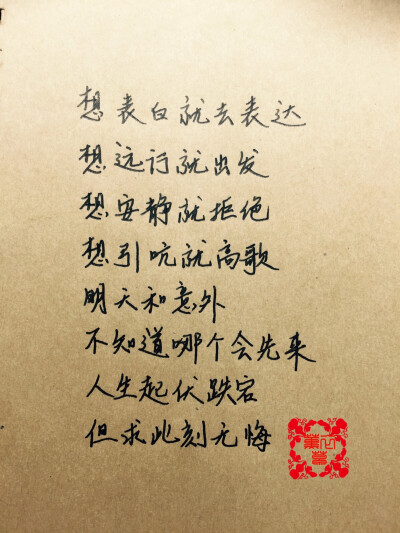 想表白就去表达
想远行就出发
想安静就拒绝
想引吭就高歌
明天和意外
不知道哪个会先来
人生起伏跌宕
但求此刻无悔